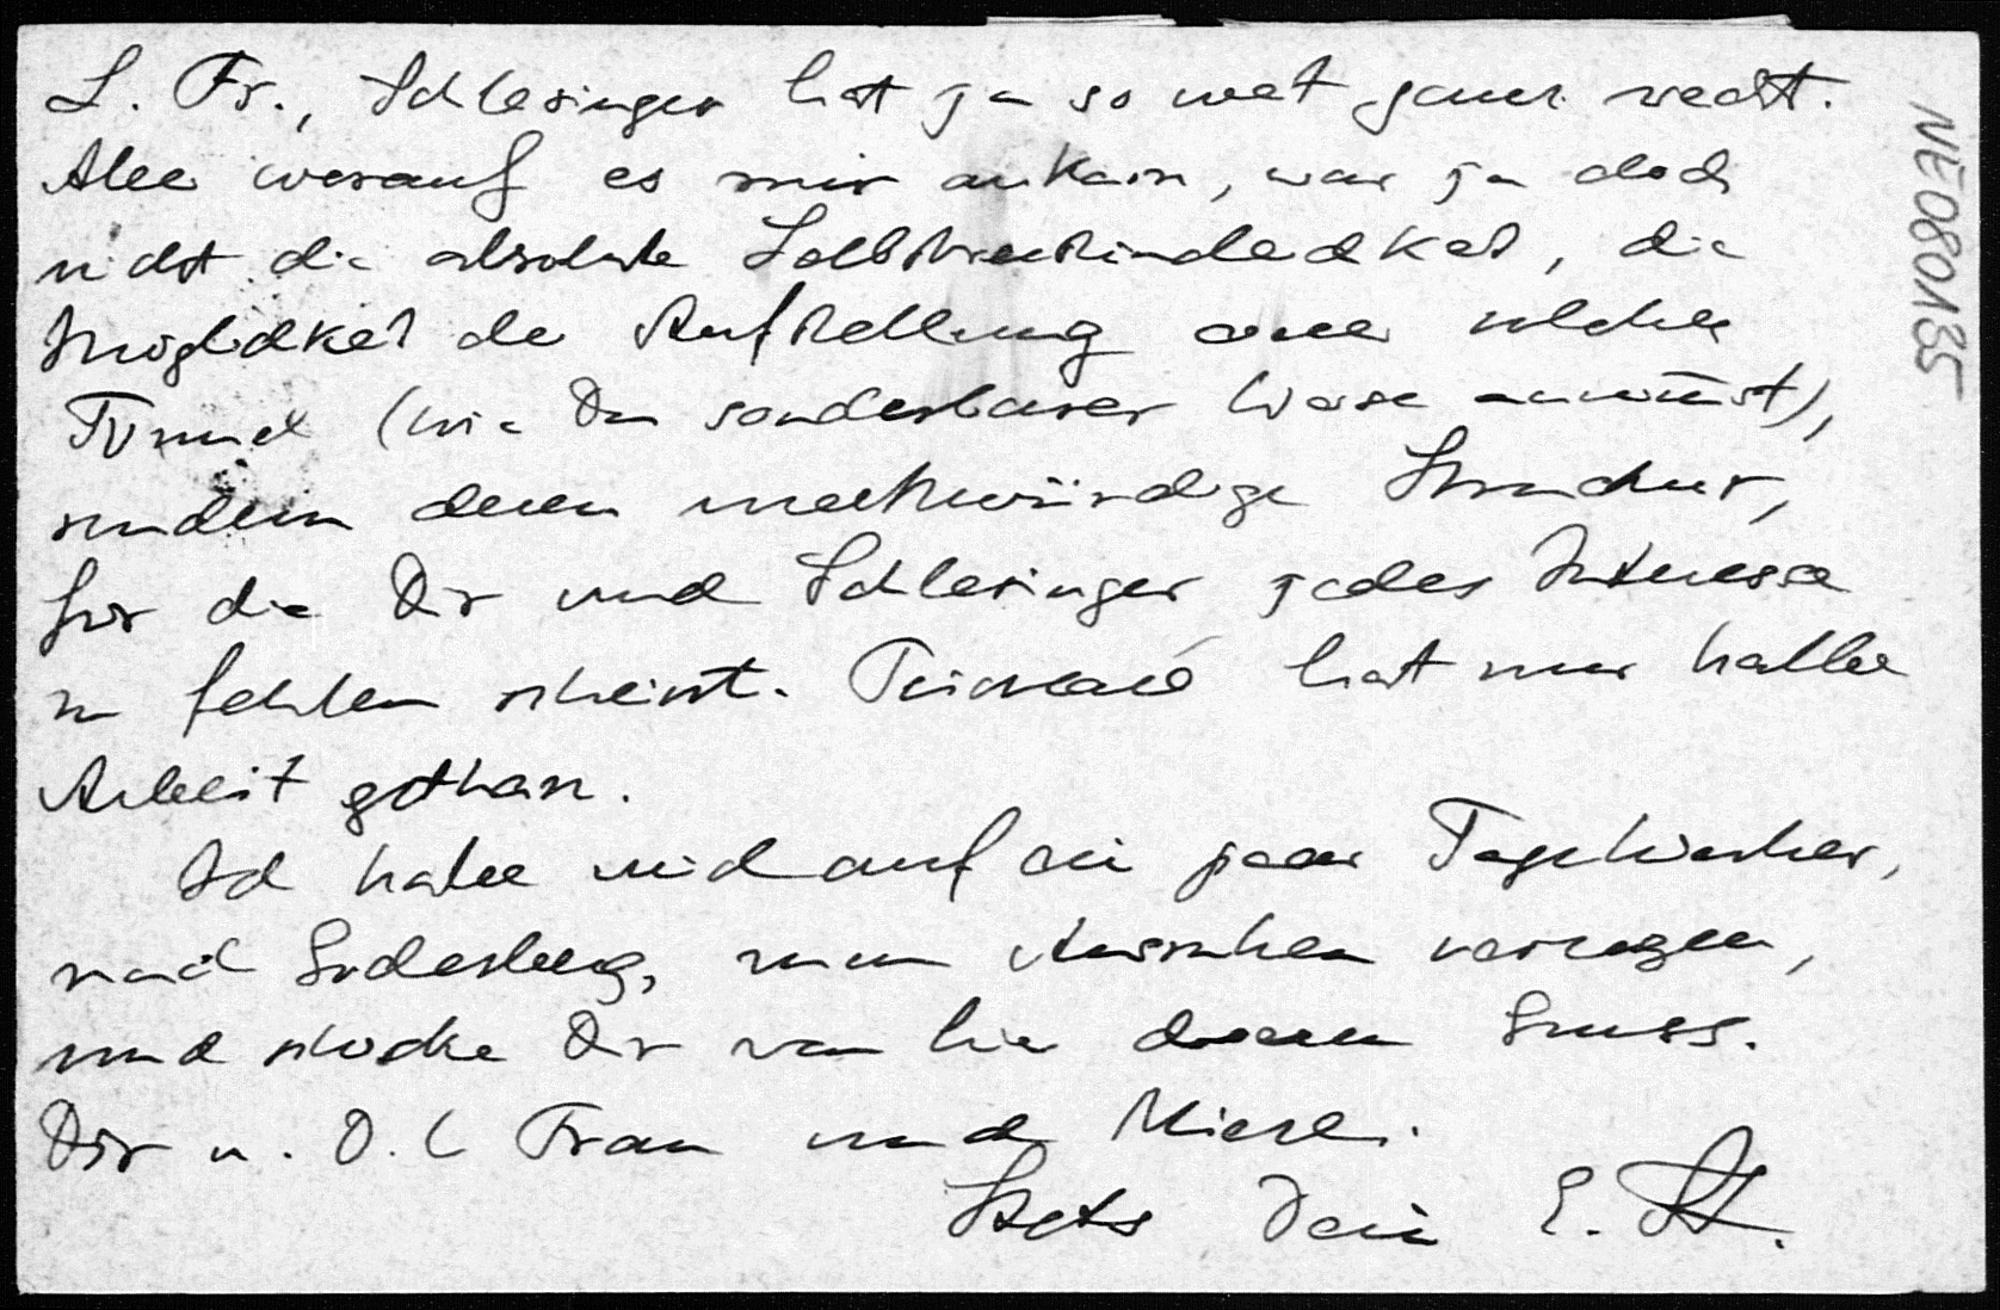 L. Fr., Schlesinger hat ja so weit ganz recht.
Aber worauf es mir ankam, war ja doch
nicht die absolute Selbstverständlichkeit, die
Möglichkeit der Aufstellung einer solchen
Formel (wie Du sonderbarer Weise annimmst),
sondern deren merkwürdige Struktur,
für die Dir und Schlesinger jedes Interesse
zu fehlen scheint. Poincaré hat nur halbe
Arbeit gethan.
Ich habe mich auf ein paar Tage hierher,
nach Godesberg, zum Ausruhen verzogen,
und schicke Dir von hier deinen Gruss.
Dir u. D. l. Frau und
Stets Dein E. St.
NE080135